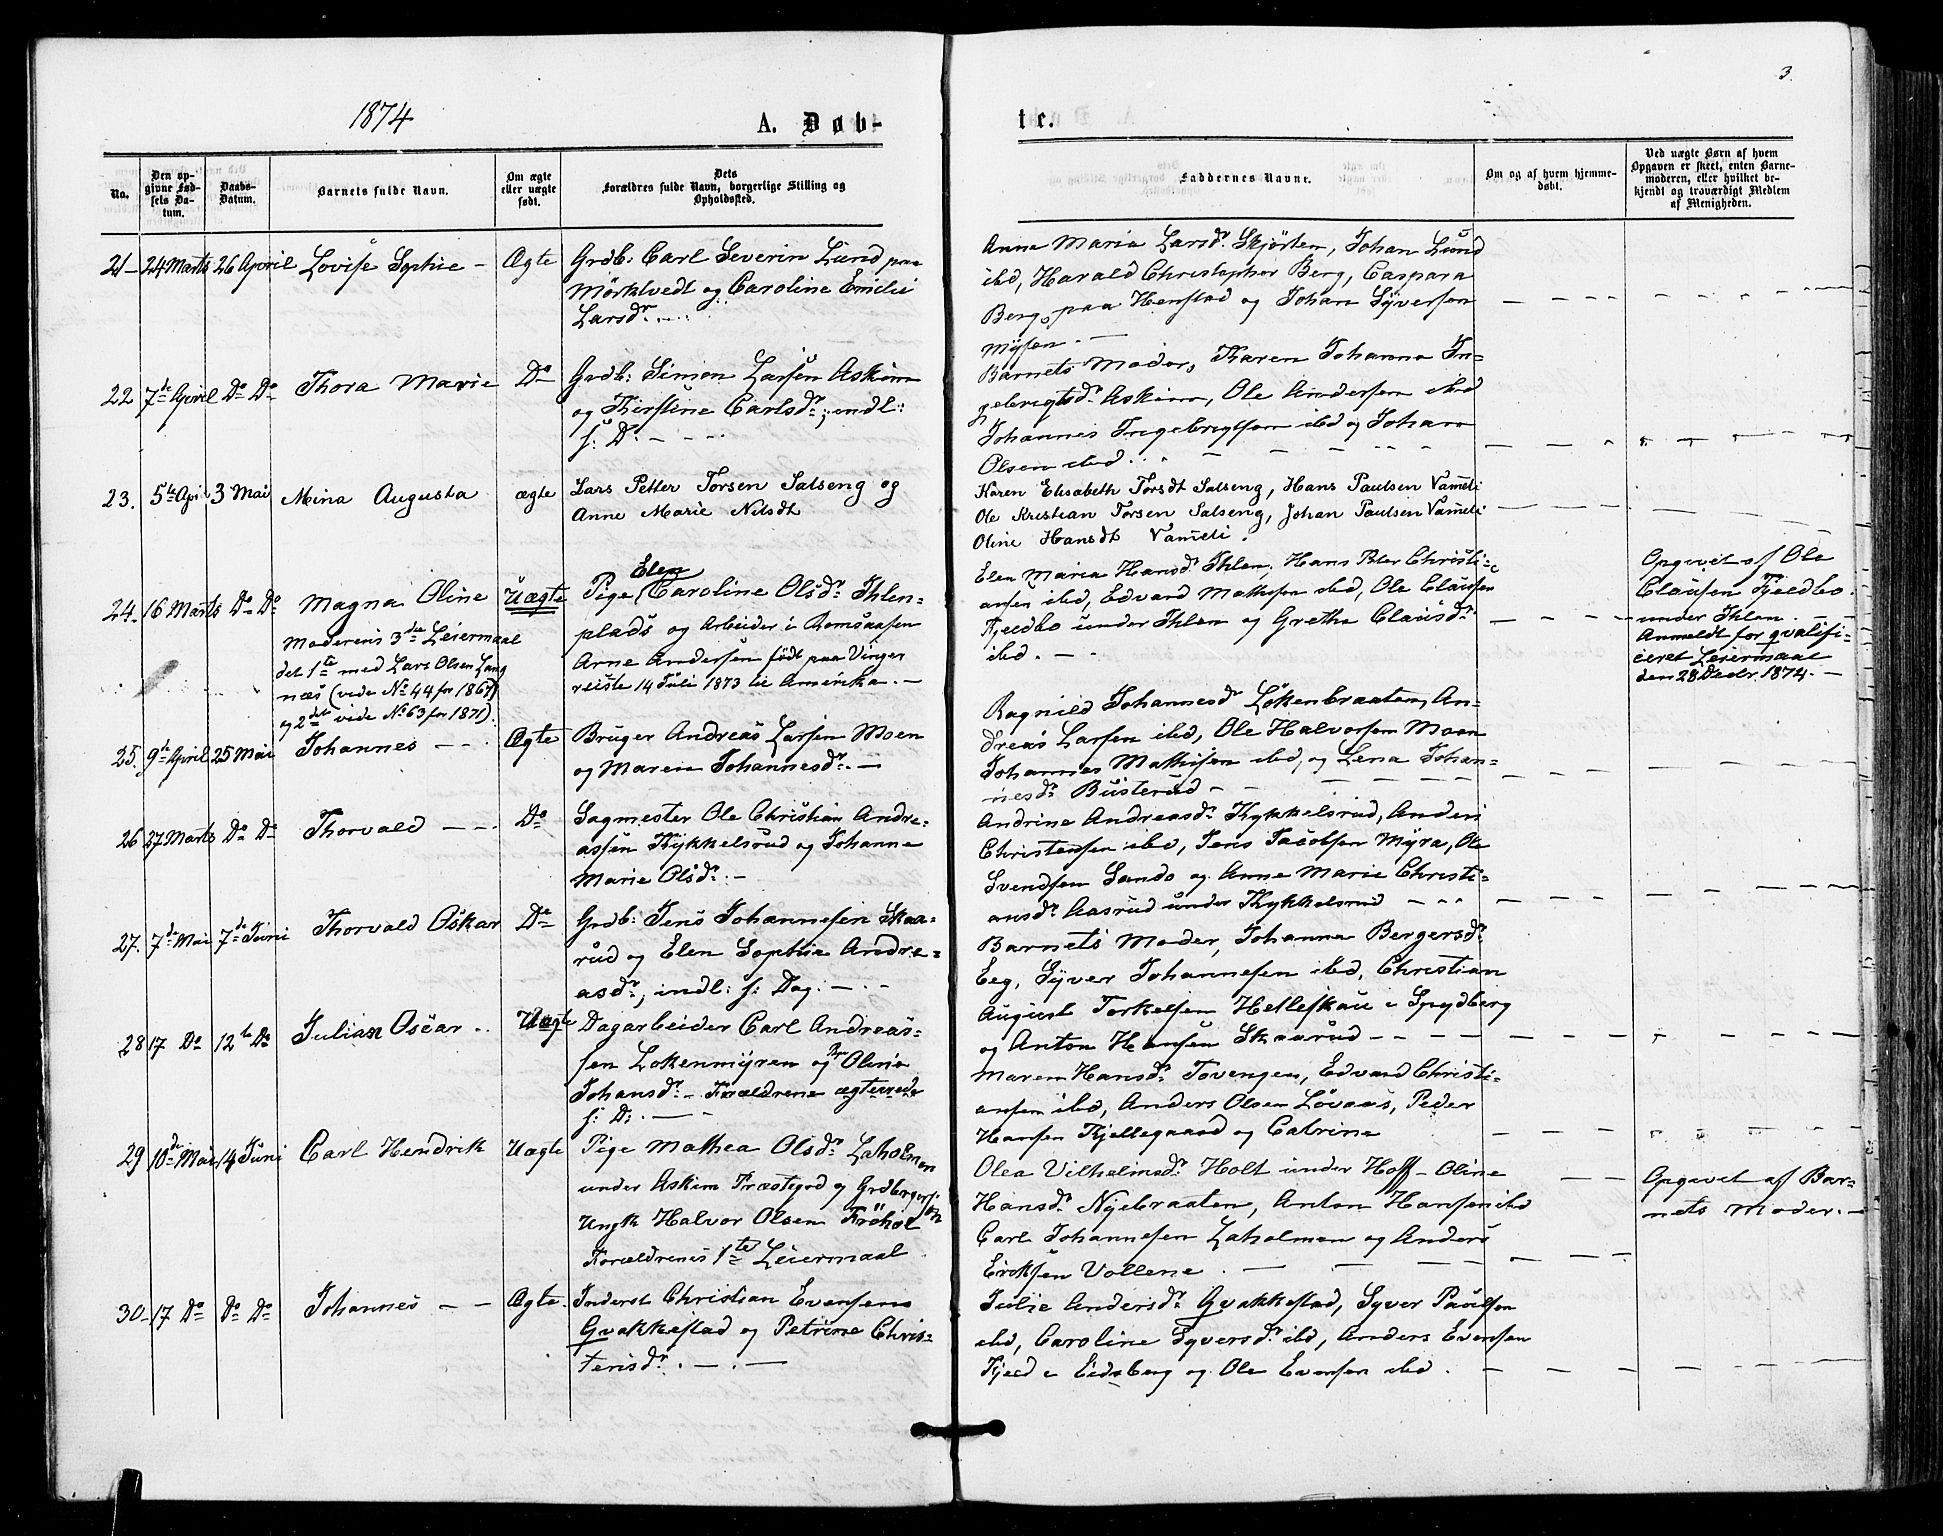 3.
1874
A. Døb-
te.
No.
Den op-
givne Fød-
sels Da-
tum.
Daabs-
Datum.
Barnets fulde Navn.
Om ægte
eller uægte
født.
Dets
Forældres fulde Navn, borgerlige Stilling og
Opholdssted.
Faddernes Navne.
Om og af hvem hjemme-
døbt.
Ved uægte Børn af hvem
Opgaven er skeet, enten Barne-
moderen, eller hvilket be-
kjendt og troværdigt Medlem
af Menigheden.
21 24 Marts 26 April Lovise Sophie - Ægte
Grdb: Carl Severin Lund paa
Mörktvedt og Caroline Emilie
Larsdr. - . .
Anne Maria Larsdr. Skjörten, Johan Lund
ibd, Harald Christopher Berg, Caspara
Berg, paa Henstad og Johan Syversen
Mysen. -
22 7de April Do Do Thora Marie Do
Grdb: Simon Larsen Askim
og Kirstine Carlsdr:, indl:
f: D: - - -
Barnets Moder, Karen Johanna In-
gebrigtsdr. Askim, Ole Andersen ibd
Johannes Ingebrigtsen ibd og Johan
Olsen ibd . . -
23. 5te Apri 3 Mai Mina Augusta ægte
Lars Petter Torsen Salseng og
Anne Marie Nilsdt
Karen Elisabeth Torsdt Salseng, Hans Paulsen Vammeli
Ole Kristian Torsen Salseng, Johan Paulsen Vammeli
Oline Hansdt Vammeli.
24. 16 Marts Do Do Magna Oline Uægte
Moderens 3die Leiermaal
det 1te med Lars Olsen Lang
næs (vide No 44 for 1867)
og 2det vide No 63 for 1871).
Elen
Pige Caroline Olsdr. Ihlen-
plads og Arbeider i Romsaasen
Arne Andersen født paa Vinger
reiste 14 Juli 1873 til Amerika. -
Elen Maria Hansdr. Ihlen, Hans Peter Christi-
ansen ibd, Edvard Mathisen ibd, Ole Clausen
Fjeldbo under Ihlen og Grethe Clausdr.
ibd. - -
Opgivet af Ole
Clausen Fjeldbo.
under Ihlen. -
Anmeldt for qvalifi-
ceret Leiermaal
den 28 Decbr. 1874. -
25. 9de April 25 Mai Johannes - - Ægte
Bruger Andreas Larsen Moen
og Maren Johannesdr. -
Ragnild Johannesd Lökenbraaten, An-
dreas Larsen ibd, Ole Halvorsen Moen
Johannes Mathisen ibd, og Lena Johan-
nesdr. Busterud - -
26 27 Marts Do Do Thorvald - - - Do
Sagmester Ole Christian Andre-
assen Kykkelsrud og Johanne
Marie Olsdr. -
Andrine Andreasdr. Kykkelsrud, Anders
Christensen ibd, Jens Jacobsen Myra, Ole
Svendsen Sando og Anne Marie Christi-
ansdr. Aasrud under Kykkelsrud - - -
27. 7de Mai 7de Juni Thorvald Oskar Do
Grdb: Jens Johannesen Skaa-
rud og Elen Sophie Andre-
asdr, indl: f: Dag. - -
Barnets Moder, Johanna Bergersdr.
Eeg, Syver Johannesen ibd, Christian
August Torkelsen Helleskau i Spydberg
og Anton Hansen Skaarud - - -
28 17 Do 12te Do Julian Oscar . . Uægte
Dagarbeider Carl Andreas-
sen Lokenmyren og Pge Oline
Johansdr. - Forældrene ægteviede
f: D: - -
Maren Hansdr. Tovengen, Edvard Christi-
ansen ibd, Anders Olsen Lövaas, Peder
Hansen Kjellegaard og Catrine
29 10de Mai 14 Juni Carl Hendrik Uægte
Pige Mathea Olsdr. Laholmen
under Askim Præstegrd og Grdbrugers.
Ungk Halvor Olsen Fröhol
Forældrenes 1te Leiermaal
Olea Vilhelmsdr. Holt under Hoff - Oline
Hansdr. Nyebraaten, Anton Hansen ibd
Carl Johannesen Laholmen og Anders
Eriksen Vollene. -
Opgivet af Bar-
nets Moder. -
30 17 Do Do Do Johannes - - Ægte.
Inderst Christian Evensen
Gvakkestad og Petrine Chris-
tensdr. - . -
Julie Andersdr. Gvakkestad, Syver Paulsen
ibd, Caroline Syversdr. ibd, Anders Evensen
Fjeld i Eidsberg og Ole Evensen ibd.